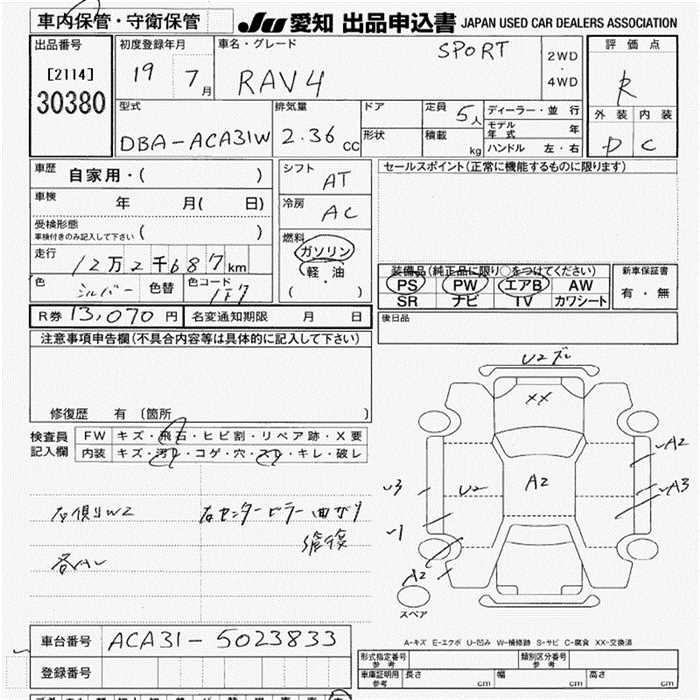 車内保管・守衛保管 JU 愛知 出品申込書 JAPAN USED CAR DEALERS ASSOCIATION
出品番号 [2114] 30380
初度登録年月 19 7月
車名・グレード RAV4 SPORT
2WD・4WD
評価点 R
外装 D 内装 C
型式 DBA-ACA31W
排気量 2.36 cc
ドア 形状
定員 5人
積載 kg
ディーラー・並行
モデル年式 年
ハンドル 左・右
車歴 自家用・( )
車検 年 月( 日)
受検形態 車検付きのみ記入して下さい ( )
走行 12万2千687km
色 シルバー 色替 色コード 1F7
シフト AT
冷房 AC
燃料 ガソリン 軽・油 ( )
セールスポイント(正常に機能するものに限ります)
装備品(純正品に限り○をつけてください)
PS PW エアB AW
SR ナビ TV カワシート
新車保証書 有・無
R券 13,070円 名変通知期限 月 日
後日品
注意事項申告欄(不具合内容等は具体的に記入して下さい)
修復歴 有 〔箇所 〕
検査員記入欄
FW キズ・飛石・ヒビ割・リペア跡・X要
内装 キズ・汚れ・コゲ・穴・スレ・キレ・破レ
右センターピラー曲がり
修復
U2
XX
A2
A3
U3
U2
A2
A2
スペア
A-キズ E-エクボ U-凹み W-補修跡 S-サビ C-腐食 XX-交換済
車台番号 ACA31-5023833
登録番号
形式指定番号 参考 類別区分番号 参考
車庫証明用 参考 長さ cm 幅 cm 高さ cm